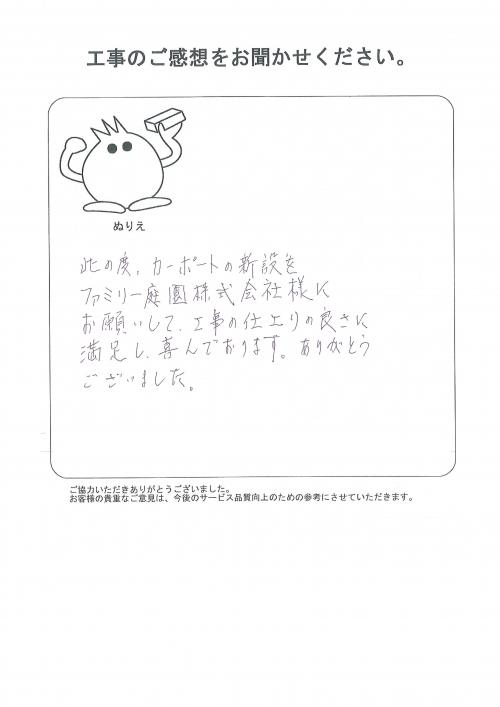 工事のご感想をお聞かせください。
ぬりえ
此の度、カーポートの新設を
ファミリー庭園株式会社様に
お願いして、工事の仕上りの良さに
満足し、喜んでおります。ありがとう
ございました。
ご協力いただきありがとうございました。
お客様の貴重なご意見は、今後のサービス品質向上のための参考にさせていただきます。